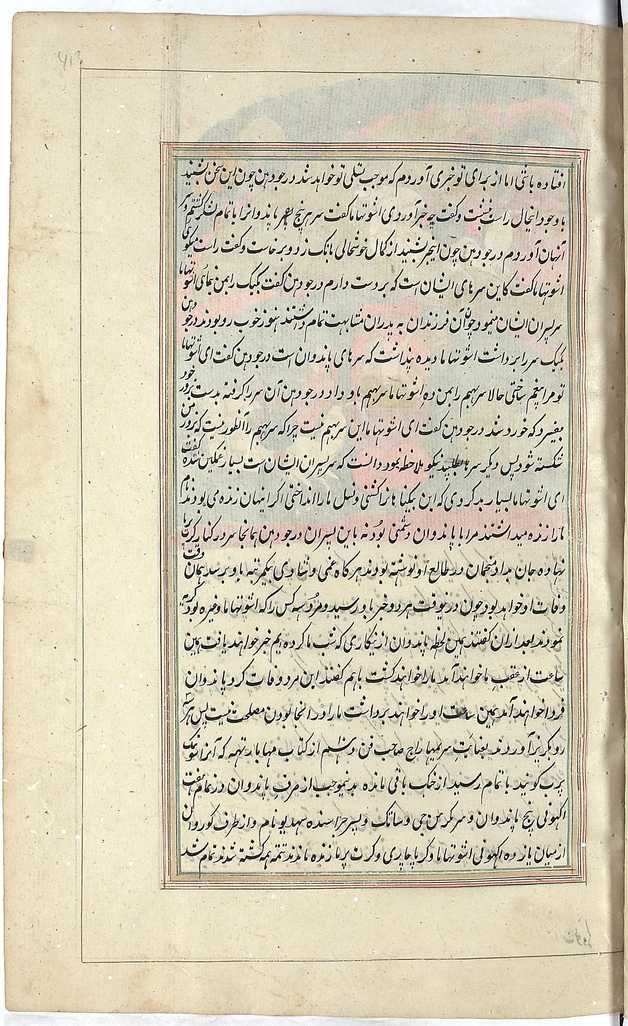 افتاده باشی اما از برای تو خبری آوردم که موجب تسلی تو خواهد شد درجودهن چون این سخن بشنید
با وجود آنحال راست بنشست و گفت چه خبر آوردی اشوتهاما گفت سر هر پنج پسر پاندو انرا با تمام لشکر کشتم و سر
آنهان آوردم درجودهن چون اینخبر شنید از کمال خوشحالی بانک زد و برخاست و گفت راست میگوئی
اشوتهاما گفت که این سرهای ایشان است که بر دست دارم درجودهن گفت یک یک را بمن بنمای اشوتهاما
سر پسران ایشان مینمود چون آن فرزندان به پدران مشابهت تمام داشتند هنوز خوب روز نبود درجودهن
یک یک سر را برداشت اشوتهاما دیده پنداشت که سرهای پاندوان است درجودهن گفت ای اشوتهاما
تو مرا بیغم ساختی حالا سر بهیم را بمن ده اشوتهاما سر بهیم باو داد درجودهن آن سر را گرفته بدست بزور خود
بیفشرد که خورد شد درجودهن گفت ای اشوتهاما این سر بهیم نیست چرا که سر بهیم را آنطور نیست که بزور من
شکسته شود پس دیگر سرها طلبید نیکو ملاحظه نمود دانست که سر پسران ایشان است بسیار غمگین شده گفت
ای اشوتهاما بسیار بد کردی که این بیگناهان را کشتی و نسل ما را انداختی اگر اینهان زنده می بودند نام
ما را زنده میداشتند مرا با پاندوان دشمنی بود نه باین پسران درجودهن همانجا سر در کنار کرپا
نهاده جان بداد منجمان در طالع او نوشته بودند هرگاه غمی و شادی یکمرتبه باو برسد همان وقت
وفات او خواهد بود چون در یوقت هر دو خبر باو رسید و مرد سه کس را که اشوتهاما و غیره بود گریه
نمودند بعد از ان گفتند همین لحظه پاندوان از نیکاری که شب ما کرده ایم خبر خواهند یافت همین
ساعت از عقب ما خواهند آمد ما را خواهند کشت باهم گفتند این مرد وفات کرد پاندوان
فردا خواهند آمد همین ساعت او را خواهند برداشت ما را در آنجا بودن مصلحت نیست پس هر سه
رو بگریز آوردند بعنایت سریمهاراج صاحب فن دهم از کتاب مهابارتهه که آنرا سوپتک
پرب گویند با تمام رسید از جنک باقی مانده بدینموجب از طرف پاندوان در تمام هفت
اکهونی پنج پاندوان و سرکرسن جی و ساتک و پسر جراسنده سهدیو نام و از طرف کوروان
از میان یازده اکهونی اشوتهاما و کرپاچاری و کرت برما زنده ماندند تتمه همه کشته شدند تمام شد